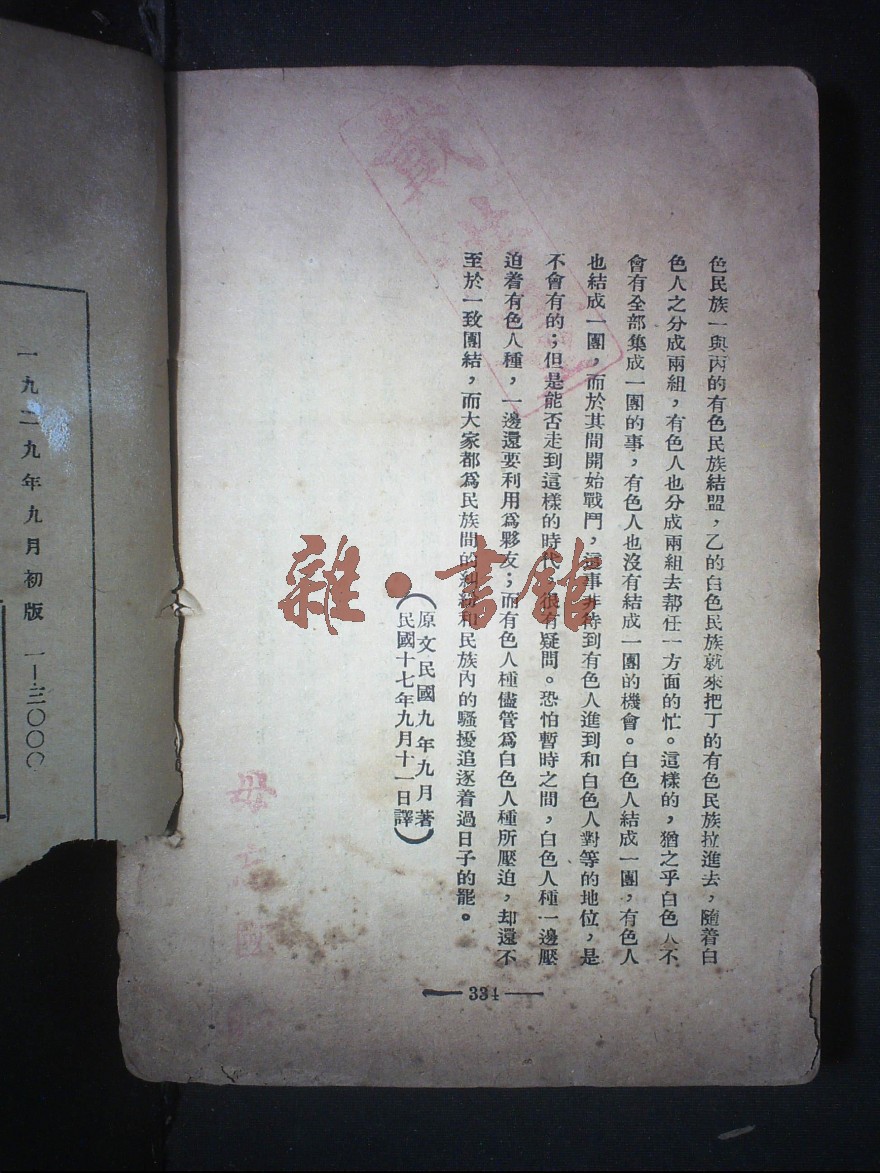 色民族一與丙的有色民族結盟，乙的白色民族就來把丁的有色民族拉進去，隨着白
色人之分成兩組，有色人也分成兩組去幇任一方面的忙。這樣的，猶之乎白色人不
會有全部集成一團的事，有色人也沒有結成一團的機會。白色人結成一團，有色人
也結成一團，而於其間開始戰鬥，這事非待到有色人進到和白色人對等的地位，是
不會有的；但是能否走到這樣的時代，很有疑問。恐怕暫時之間，白色人種一邊壓
迫着有色人種，一邊還要利用爲夥友；而有色人種儘管爲白色人種所壓迫，却還不
至於一致團結，而大家都爲民族間的糾紛和民族內的騷擾追逐着過日子的罷。
（原文民國九年九月著
民國十七年九月十一日譯）
334
一九二九年九月初版 一—三〇〇〇
雜·書館
毋忘國